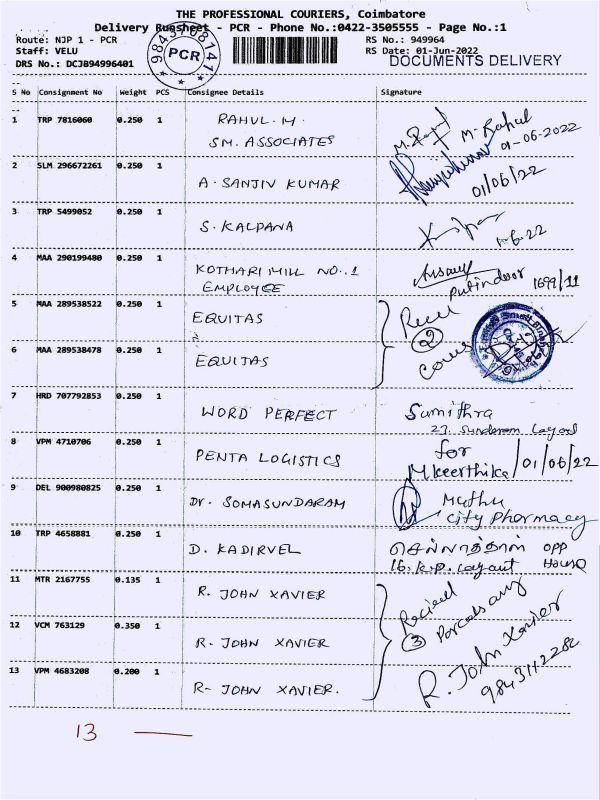 THE PROFESSIONAL COURIERS, Coimbatore
Delivery Runsheet - PCR - Phone No.:0422-3505555 - Page No.:1
Route: NJP 1 - PCR
RS No.: 949964
Staff: VELU
RS Date: 01-Jun-2022
DRS No.: DCJB94996401
DOCUMENTS DELIVERY
PCR
S No Consignment No Weight PCS Consignee Details Signature
1 TRP 7816060 0.250 1 RAHUL.M. M. Rahul
SM. ASSOCIATES 01-06-2022
2 SLM 296672261 0.250 1 A. SANJIV KUMAR 01/06/22
3 TRP 5499052 0.250 1 S. KALPANA 1-6-22
4 MAA 290199480 0.250 1 KOTHARI MILL NO..1
EMPLOYEE 1699/11
5 MAA 289538522 0.250 1 EQUITAS
2
6 MAA 289538478 0.250 1 EQUITAS
7 HRD 707792853 0.250 1 WORD PERFECT Sumithra
27. Sundaram Layout
8 VPM 4710706 0.250 1 PENTA LOGISTICS for
M.Keerthika/01/06/22
9 DEL 900980825 0.250 1 Dr. SOMASUNDARAM Muthu
City Pharmacy
10 TRP 4658881 0.250 1 D. KADIRVEL செல்லாத்தாள் opp
16. k.p. Layout House
11 MTR 2167755 0.135 1 R. JOHN XAVIER
12 VCM 763129 0.350 1 R. JOHN XAVIER 3
R. John Xavier
13 VPM 4683208 0.200 1 R- JOHN XAVIER.
13